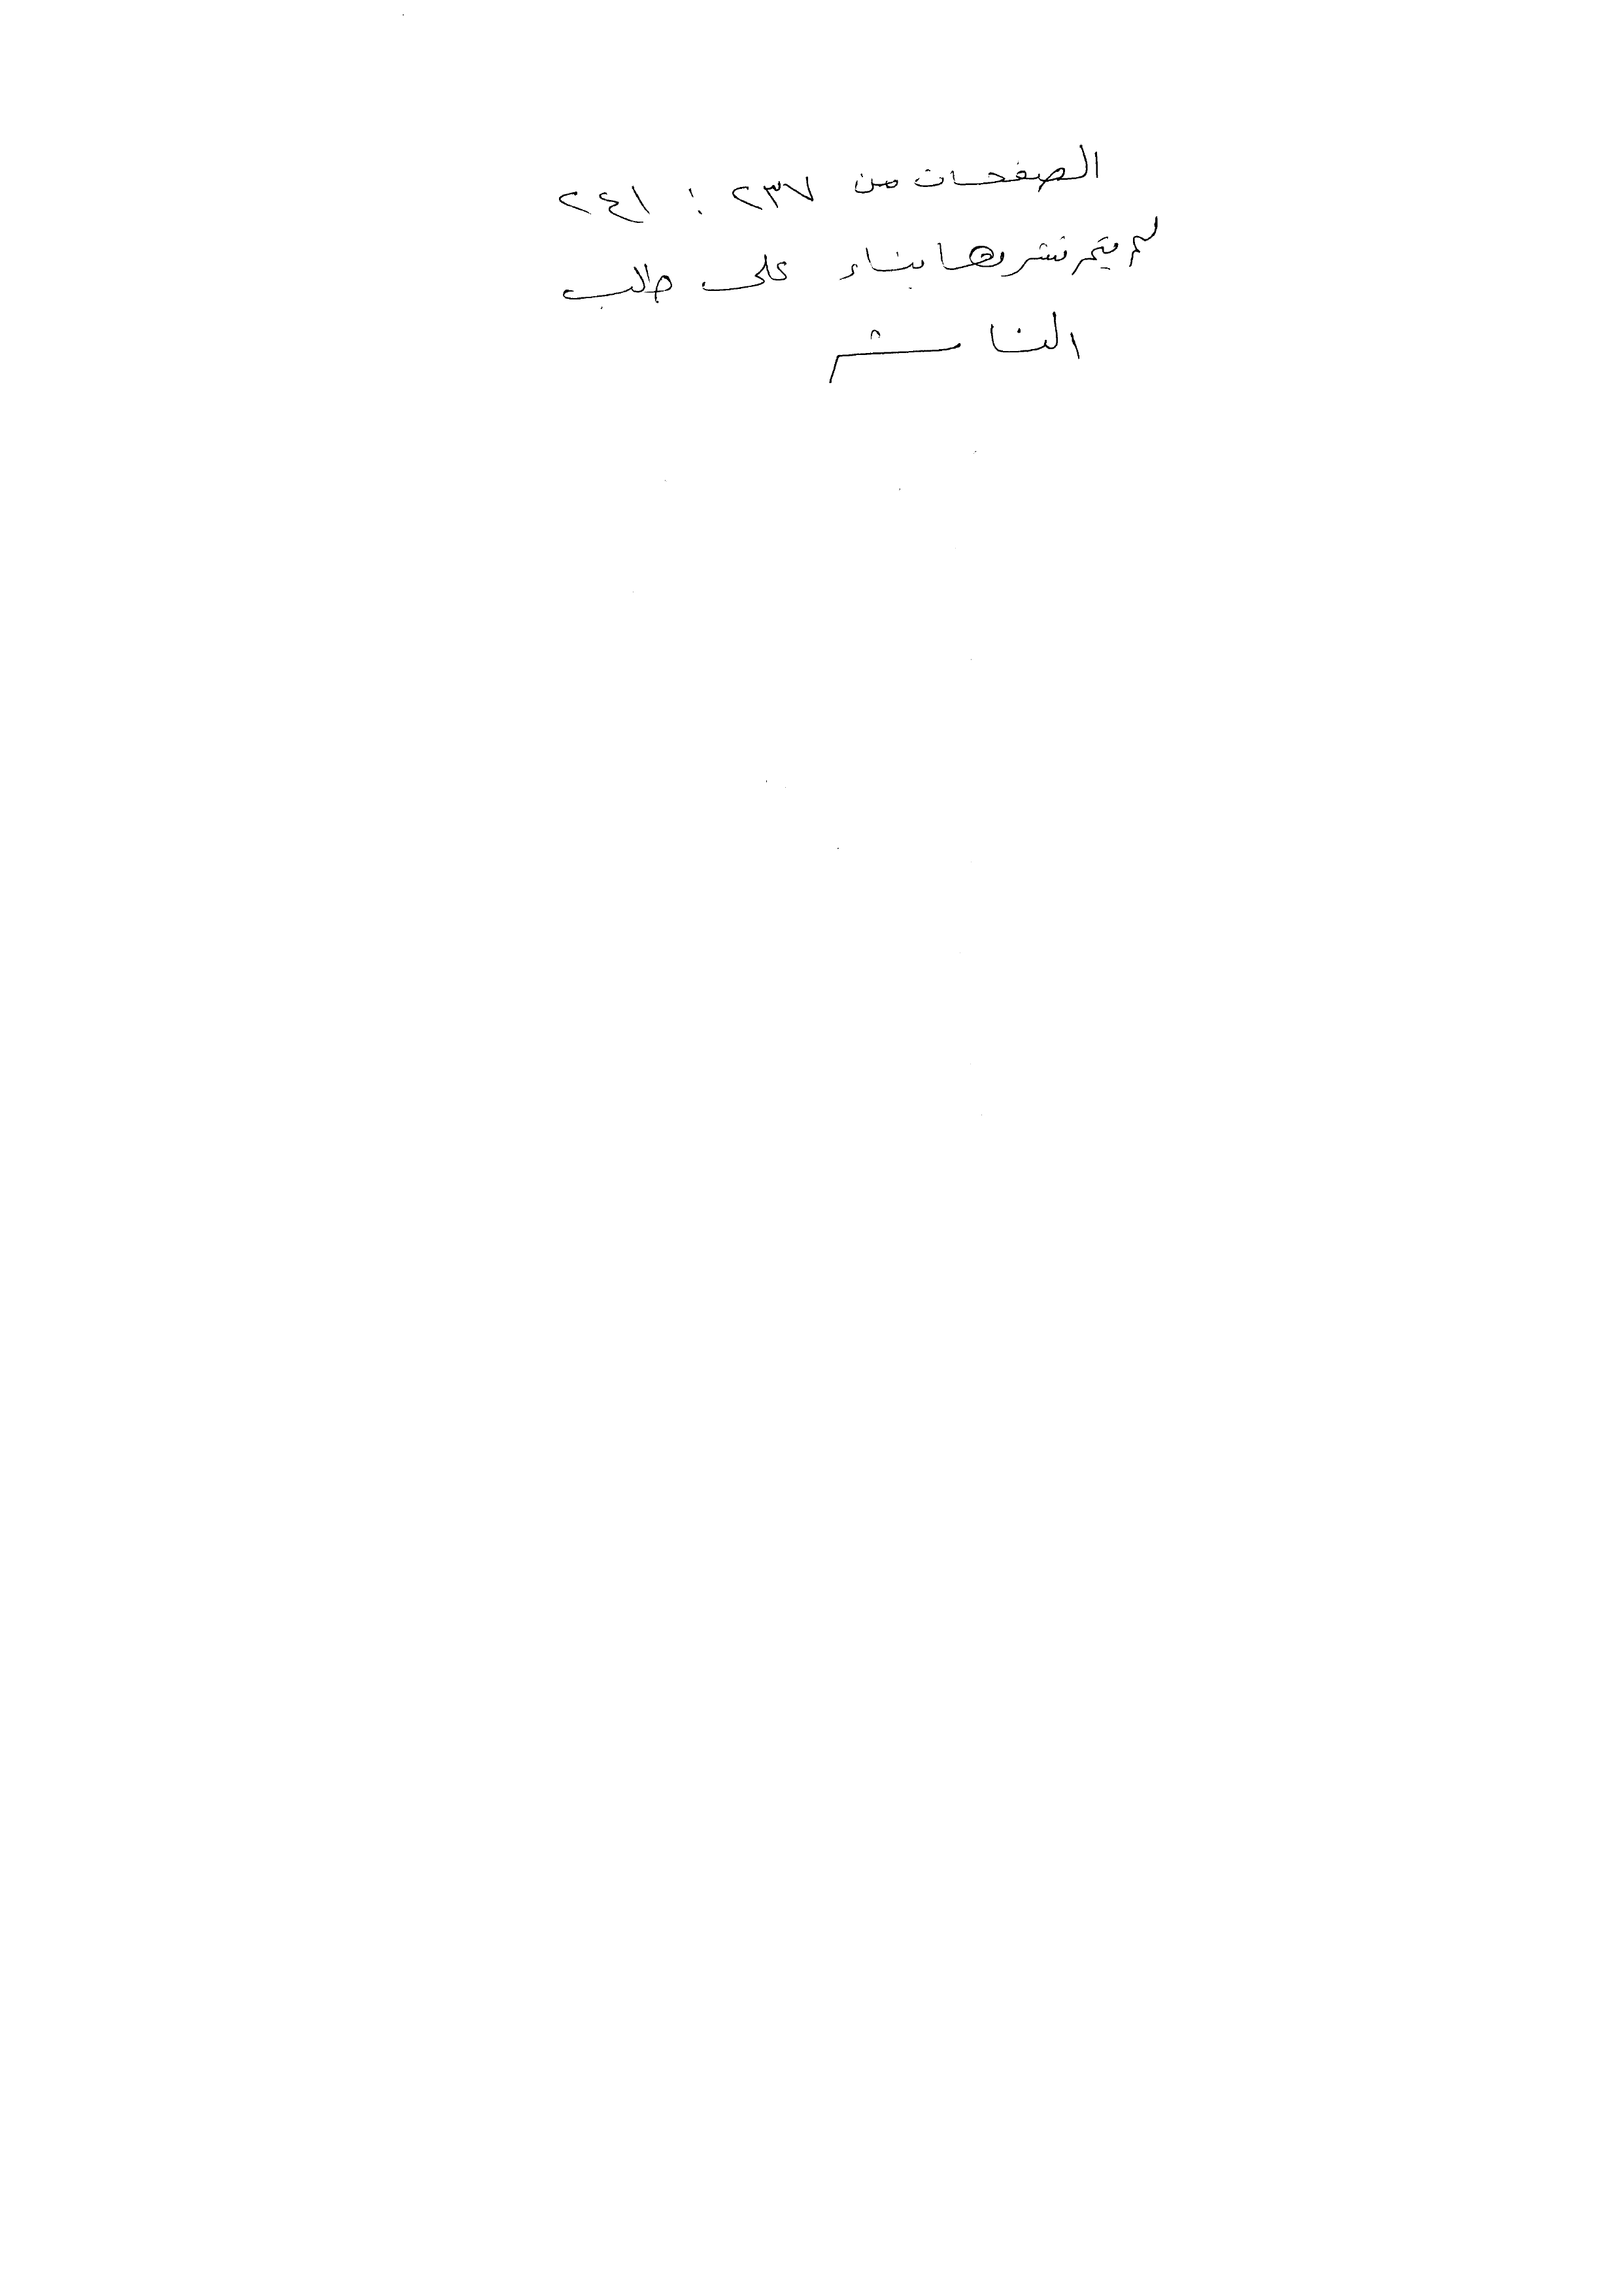 الصفحات من ٢٣٧ : ٢٤١
لم يتم نشرها بناء على طلب
الناشر